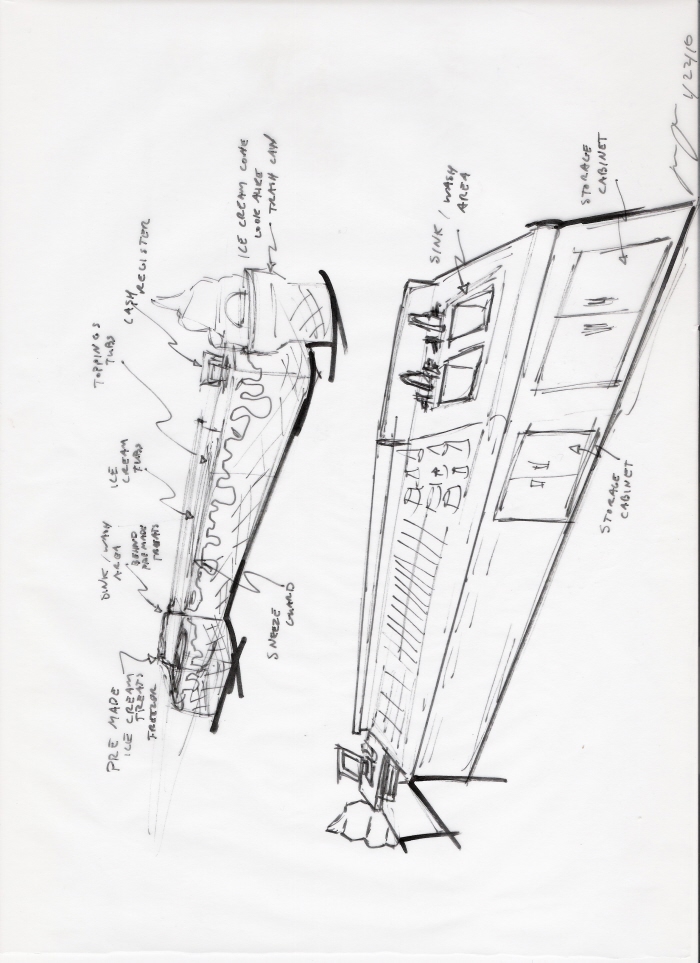 PRE MADE
ICE CREAM
TREATS
FREEZER
SINK / WASH
AREA
BEHIND
PREMADE
TREATS
ICE
CREAM
TUBS
TOPPINGS
TUBS
CASH
REGISTER
ICE CREAM CONE
LOOK ALIKE
TRASH CAN
SNEEZE
GUARD
SINK / WASH
AREA
STORAGE
CABINET
STORAGE
CABINET